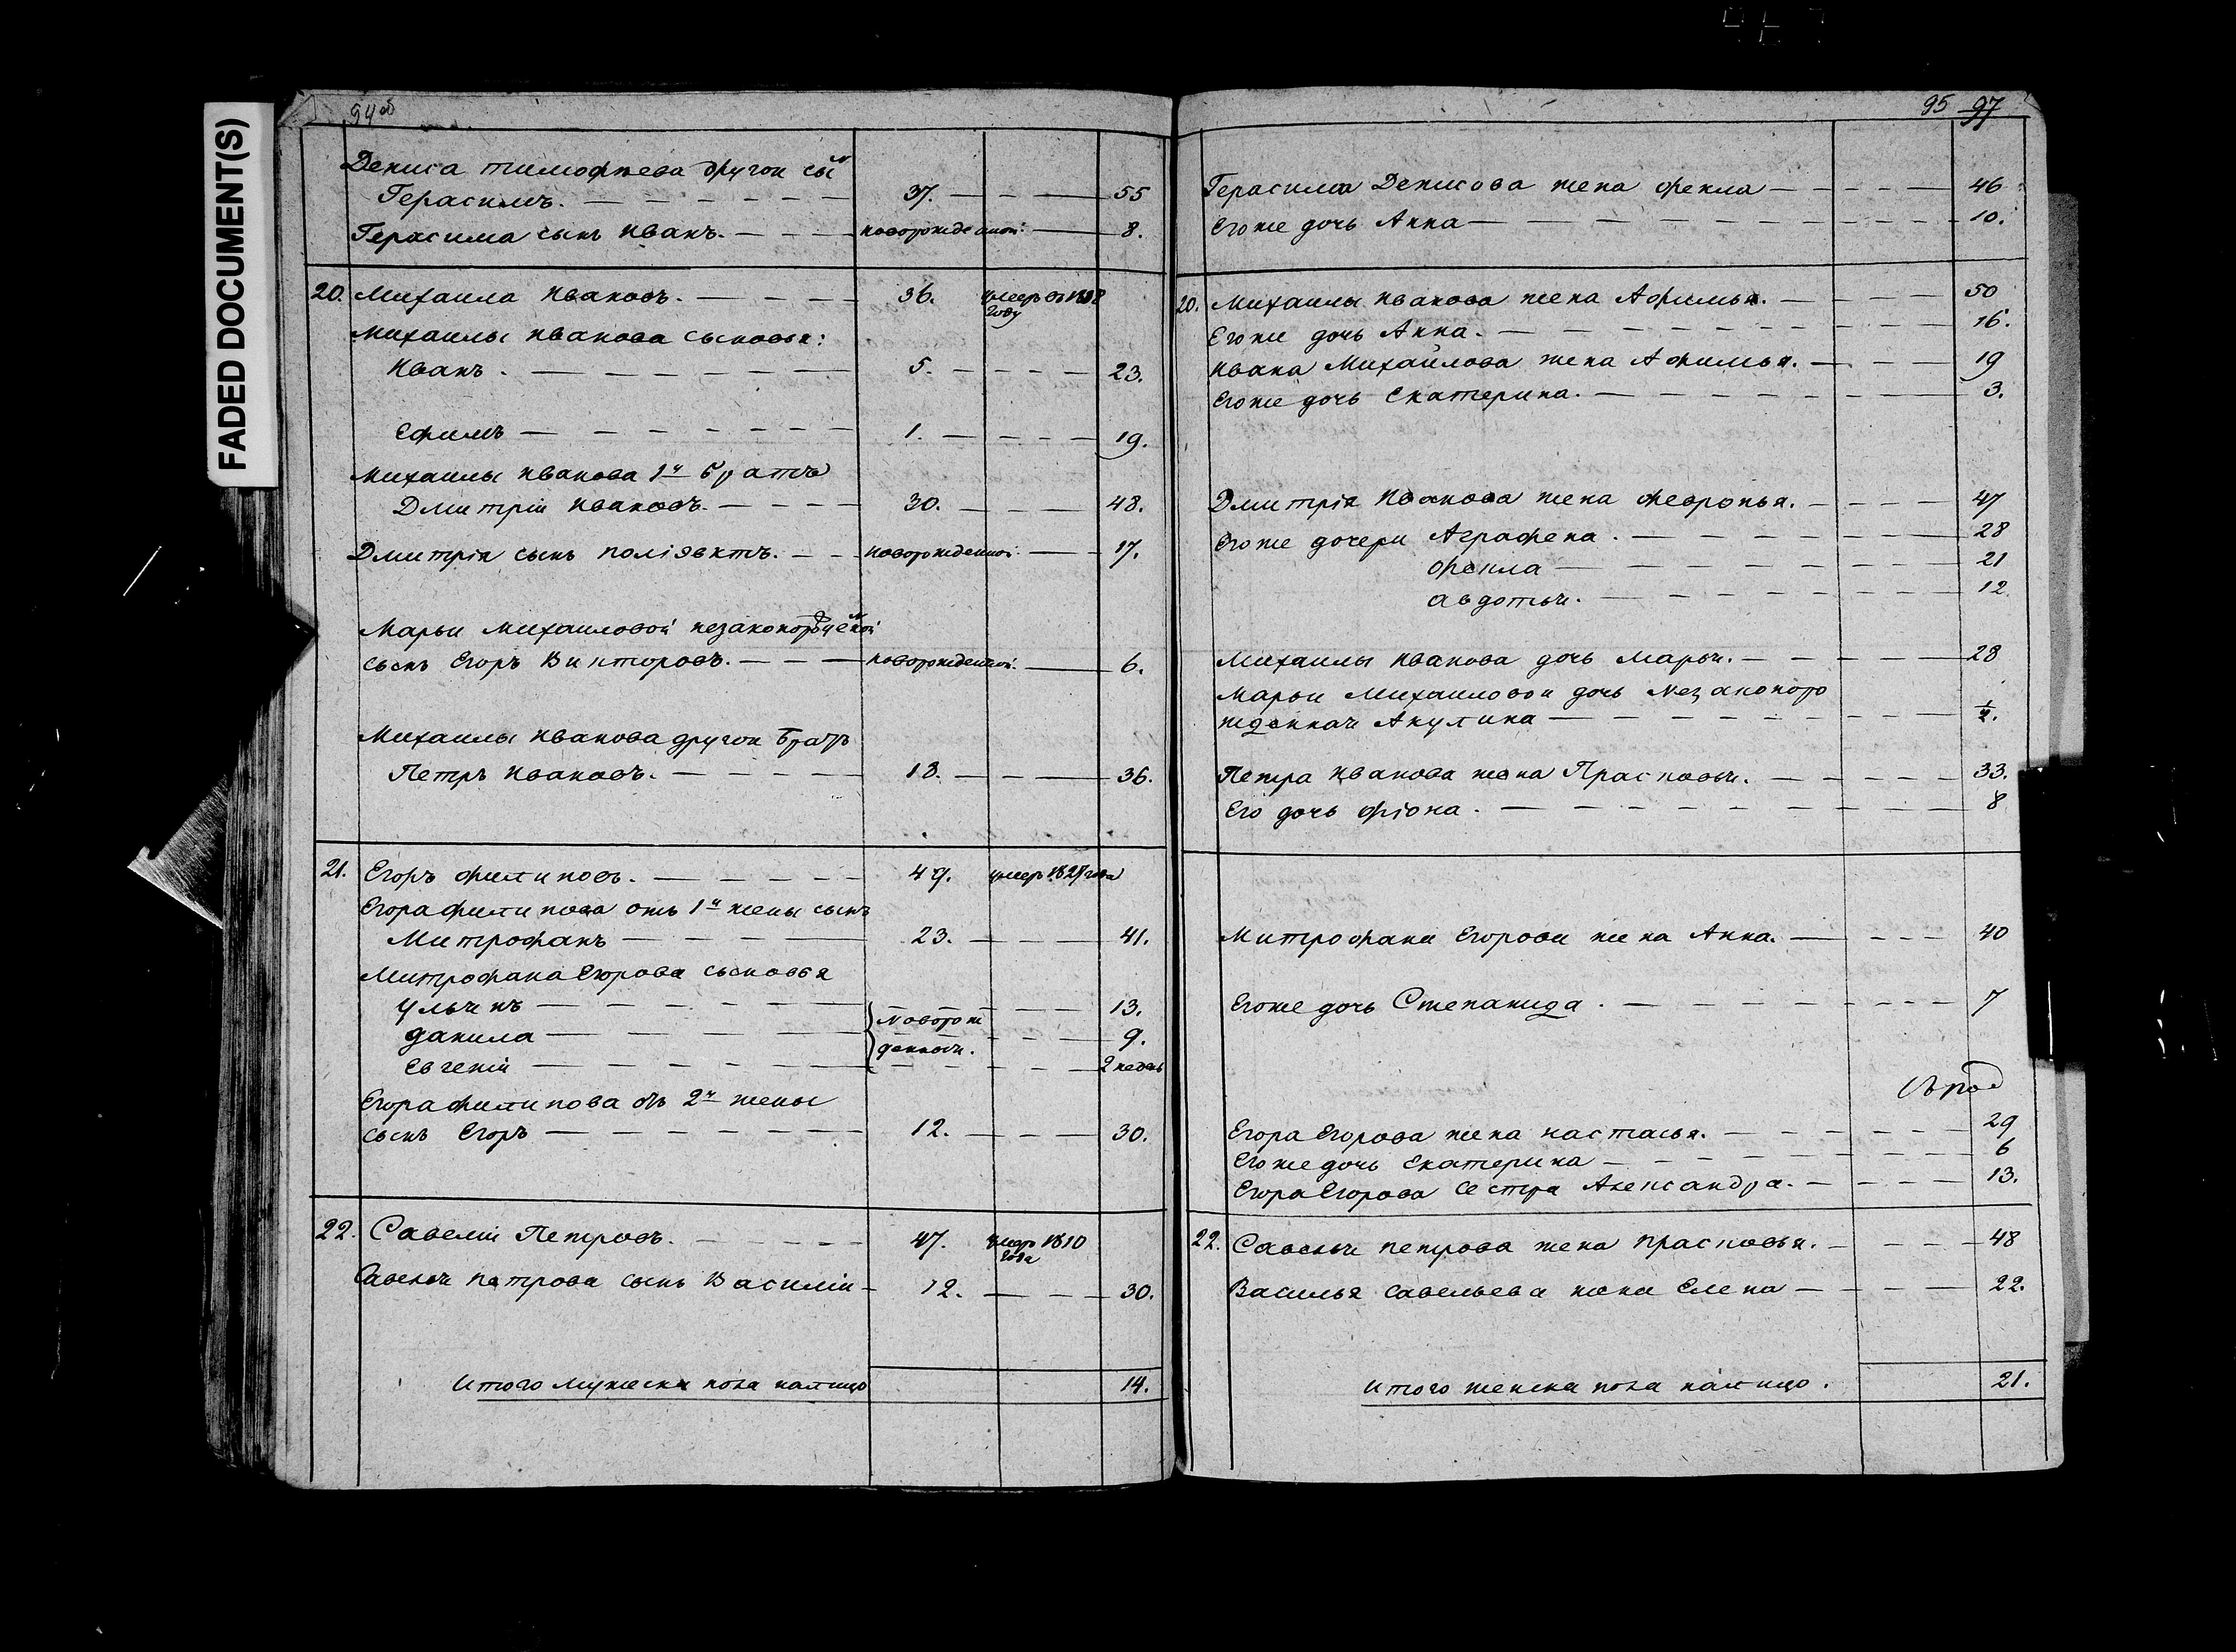 FADED DOCUMENT(S)
94об
Дениса тимофѣева другои сы н
Герасимъ. 37. 55
Герасима сынъ Иванъ. новорожденной. 8.
20. Михаила Ивановъ. 36. умеръ въ 1818
году
Михаилы Иванова сыновья:
Иванъ. 5. 23.
Ефимъ 1. 19.
Михаилы Иванова 1й братъ
Дмитрій Ивановъ. 30. 48.
Дмитрія сынъ поліевктъ. новорожденной. 17.
Марьи Михаиловой незаконорожденой
сынъ Егоръ Викторовъ. новорожденной. 6.
Михаилы Иванова другои братъ
Петръ Ивановъ. 18. 36.
21. Егоръ филиповъ. 49. умеръ 1821 года
Егора филипова отъ 1й жены сынъ
Митрофанъ 23. 41.
Митрофана Егорова сыновья
Ульянъ 13.
данила новорож 9.
Евгеній денныя. 2 недель
Егора филипова отъ 2й жены
сынъ Егоръ 12. 30.
22. Савелій Петровъ. 47. умеръ 1810
года
Савелья петрова сынъ Василіи 12. 30.
Итого мужеска пола налицо 14.
95 97
Герасима Денисова жена фекла 46
Егоже дочь Анна 10.
20. Михаилы Иванова жена Афимья. 50
Егоже дочь Анна. 16.
Ивана Михайлова жена Афимья. 19
Егоже дочь Екатерина. 3.
Дмитрія Иванова жена февронья. 47
Егоже дочери Аграфена. 28
фекла 21
авдотья. 12
Михаилы Иванова дочь Марья. 28
Марьи Михаиловои дочь незаконоро
жденная Акулина ½.
Петра Иванова жена Прасковья. 33.
Его дочь фіона. 8
Митрофана Егорова жена Анна. 40
Егоже дочь Степанида. 7
Егора Егорова жена настасья. 29
Егоже дочь Екатерина 6
Егора Егорова сестра Александра. 13.
22. Савелья петрова жена прасковья. 48
Василья савельева жена Елена 22.
Итого женска пола налицо. 21.